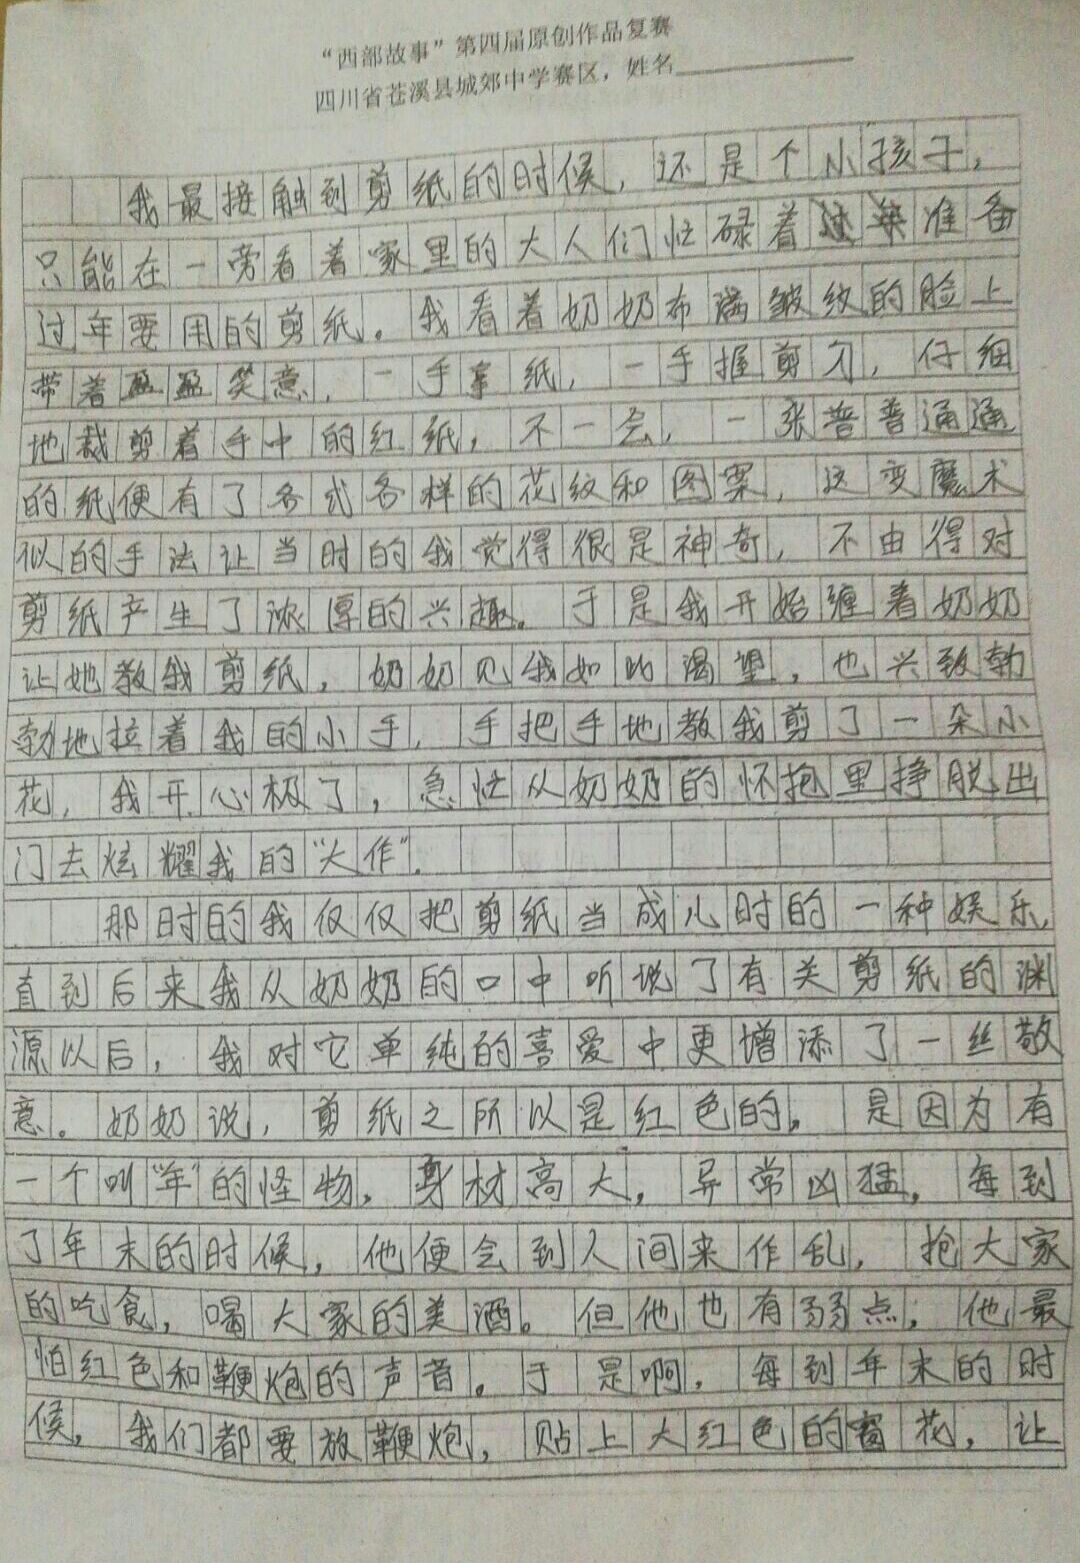 “西部故事”第四届原创作品复赛
四川省苍溪县城郊中学赛区，姓名
我最接触到剪纸的时候，还是个小孩子，
只能在一旁看着家里的大人们忙碌着准备
过年要用的剪纸。我看着奶奶布满皱纹的脸上
带着盈盈笑意，一手拿纸，一手握剪刀，仔细
地裁剪着手中的红纸，不一会，一张普普通通
的纸便有了各式各样的花纹和图案，这变魔术
似的手法让当时的我觉得很是神奇，不由得对
剪纸产生了浓厚的兴趣。于是我开始缠着奶奶
让她教我剪纸，奶奶见我如此渴望，也兴致勃
勃地拉着我的小手，手把手地教我剪了一朵小
花，我开心极了，急忙从奶奶的怀抱里挣脱出
门去炫耀我的“大作”。
那时的我仅仅把剪纸当成儿时的一种娱乐，
直到后来我从奶奶的口中听说了有关剪纸的渊
源以后，我对它单纯的喜爱中更增添了一丝敬
意。奶奶说，剪纸之所以是红色的，是因为有
一个叫“年”的怪物，身材高大，异常凶猛，每到
了年末的时候，他便会到人间来作乱，抢大家
的吃食，喝大家的美酒。但他也有弱点，他最
怕红色和鞭炮的声音。于是啊，每到年末的时
候，我们都要放鞭炮，贴上大红色的窗花，让